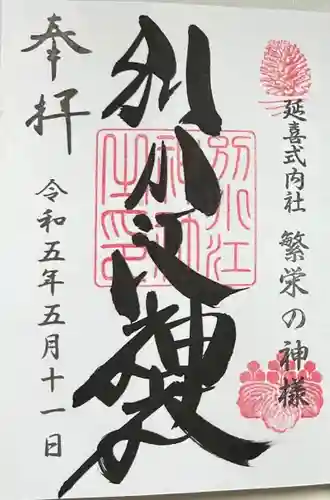 延喜式内社 繁栄の神様
別小江神社
別小江
神社
之印
奉拝
令和五年五月十一日